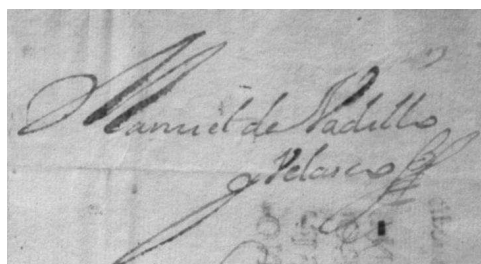 Manuel de Vadillo
y Velasco